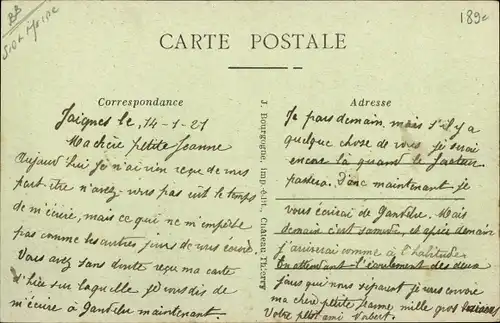 BB
189c
CARTE POSTALE
Correspondance
Jaignes le, 14-1-21
Ma chère petite Jeanne
Aujourd'hui je n'ai rien reçu de vous
peut-être n'avez-vous pas eut le temps
de m'écrire, mais ce que ne m'empêche
pas comme les autres jours de vous écrire.
Vous avez sans doute reçu ma carte
d'hier sur laquelle je vous dis de
m'écrire à Gandelu maintenant.
J. Bourgogne, Imp.-édit., Château Thierry
Adresse
Je pars demain, mais s'il y a
quelque chose de vous je serai
encor là quand le facteur
passera. Donc maintenant je
vous écrirai de Gandelu. Mais
demain c'est samedi, et après demain
j'arriverai comme à l'habitude.
En attendant l'écoulement des deux
jours qui nous séparent je vous envoie
ma chère petite Jeanne mille gros baisers
Votre petit ami